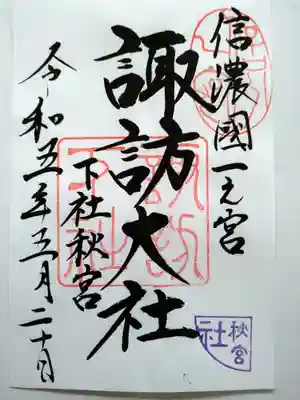 信濃國一之宮
諏訪大社
下社秋宮
令和五年五月二十日
秋宮
社